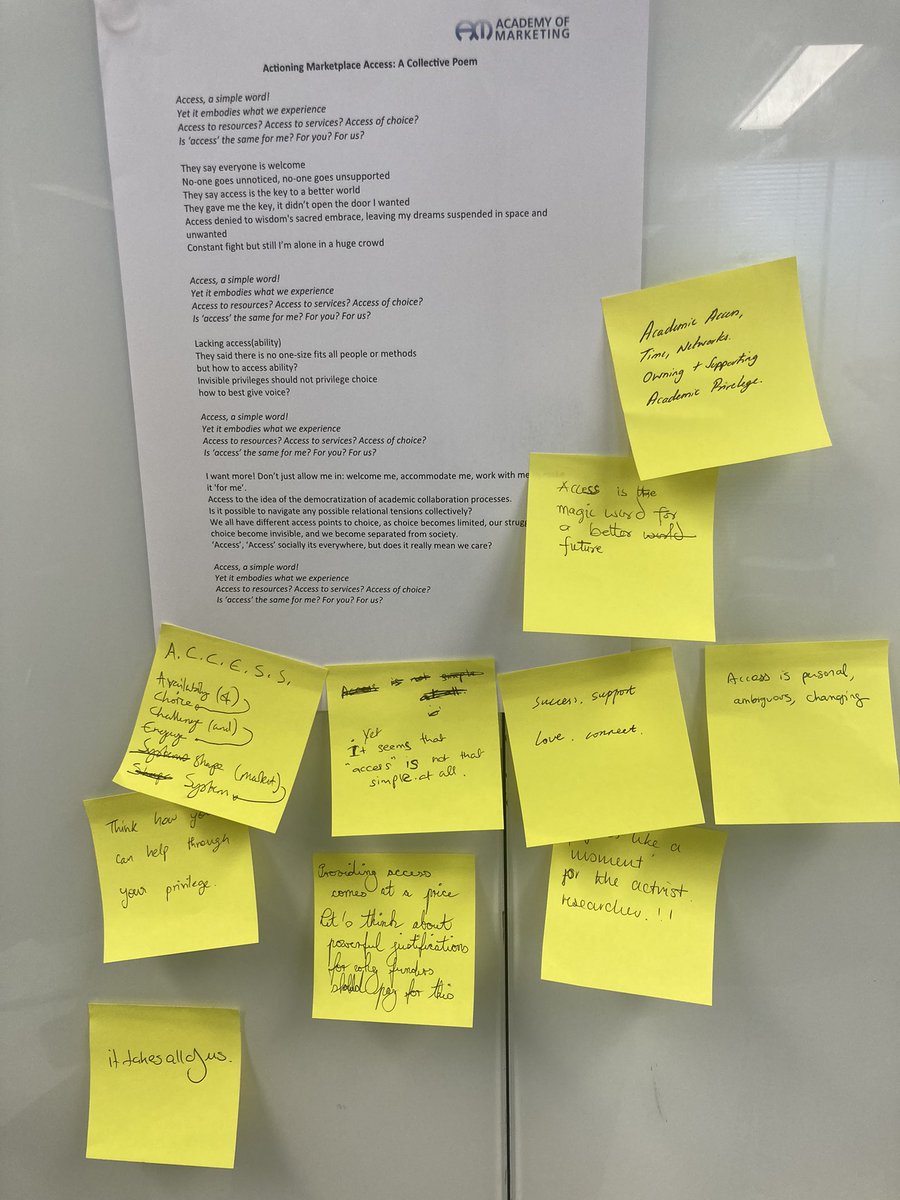 ACADEMY OF
MARKETING
Actioning Marketplace Access: A Collective Poem
Access, a simple word!
Yet it embodies what we experience
Access to resources? Access to services? Access of choice?
Is 'access' the same for me? For you? For us?
They say everyone is welcome
No-one goes unnoticed, no-one goes unsupported
They say access is the key to a better world
They gave me the key, it didn't open the door I wanted
Access denied to wisdom's sacred embrace, leaving my dreams suspended in space and
unwanted
Constant fight but still I'm alone in a huge crowd
Access, a simple word!
Yet it embodies what we experience
Access to resources? Access to services? Access of choice?
Is 'access' the same for me? For you? For us?
Lacking access(ability)
They said there is no one-size fits all people or methods
but how to access ability?
Invisible privileges should not privilege choice
how to best give voice?
Access, a simple word!
Yet it embodies what we experience
Access to resources? Access to services? Access of choice?
Is 'access' the same for me? For you? For us?
I want more! Don't just allow me in: welcome me, accommodate me, work with me
it 'for me'.
Access to the idea of the democratization of academic collaboration processes.
Is it possible to navigate any possible relational tensions collectively?
We all have different access points to choice, as choice becomes limited, our strugg
choice become invisible, and we become separated from society.
'Access', 'Access' socially its everywhere, but does it really mean we care?
Access, a simple word!
Yet it embodies what we experience
Access to resources? Access to services? Access of choice?
Is 'access' the same for me? For you? For us?
Academic Access,
Time, Networks.
Owning + Supporting
Academic Privilege.
Access is the
magic word for
a better world
future
A.C.C.E.S.S.
Availability (of)
Choice
Challenge (and)
Engage
Systems Shape (market)
Shape System
Access is not simple
at all
Yet
It seems that
"access" IS not that
simple at all.
Success. Support
Love. connect.
Access is personal,
ambiguous, changing
Think how you
can help through
your privilege.
Providing access
comes at a price
Let's think about
powerful justifications
for why funders
should pay for this
like a
'moment'
for the activist
researcher.!!
it takes all of us.